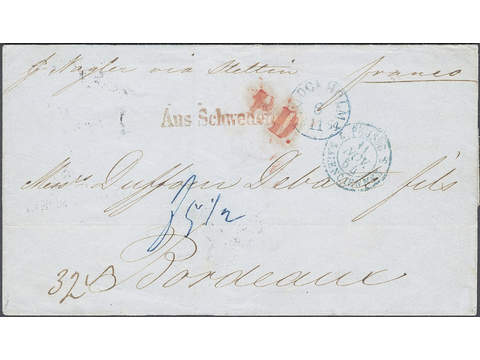 pr Nagler via Stettin franco
Aus Schweden
P.D.
STOCKHOLM
8
11
Messrs Duffour Dubau fils
f 5 1/2
Bordeaux
32